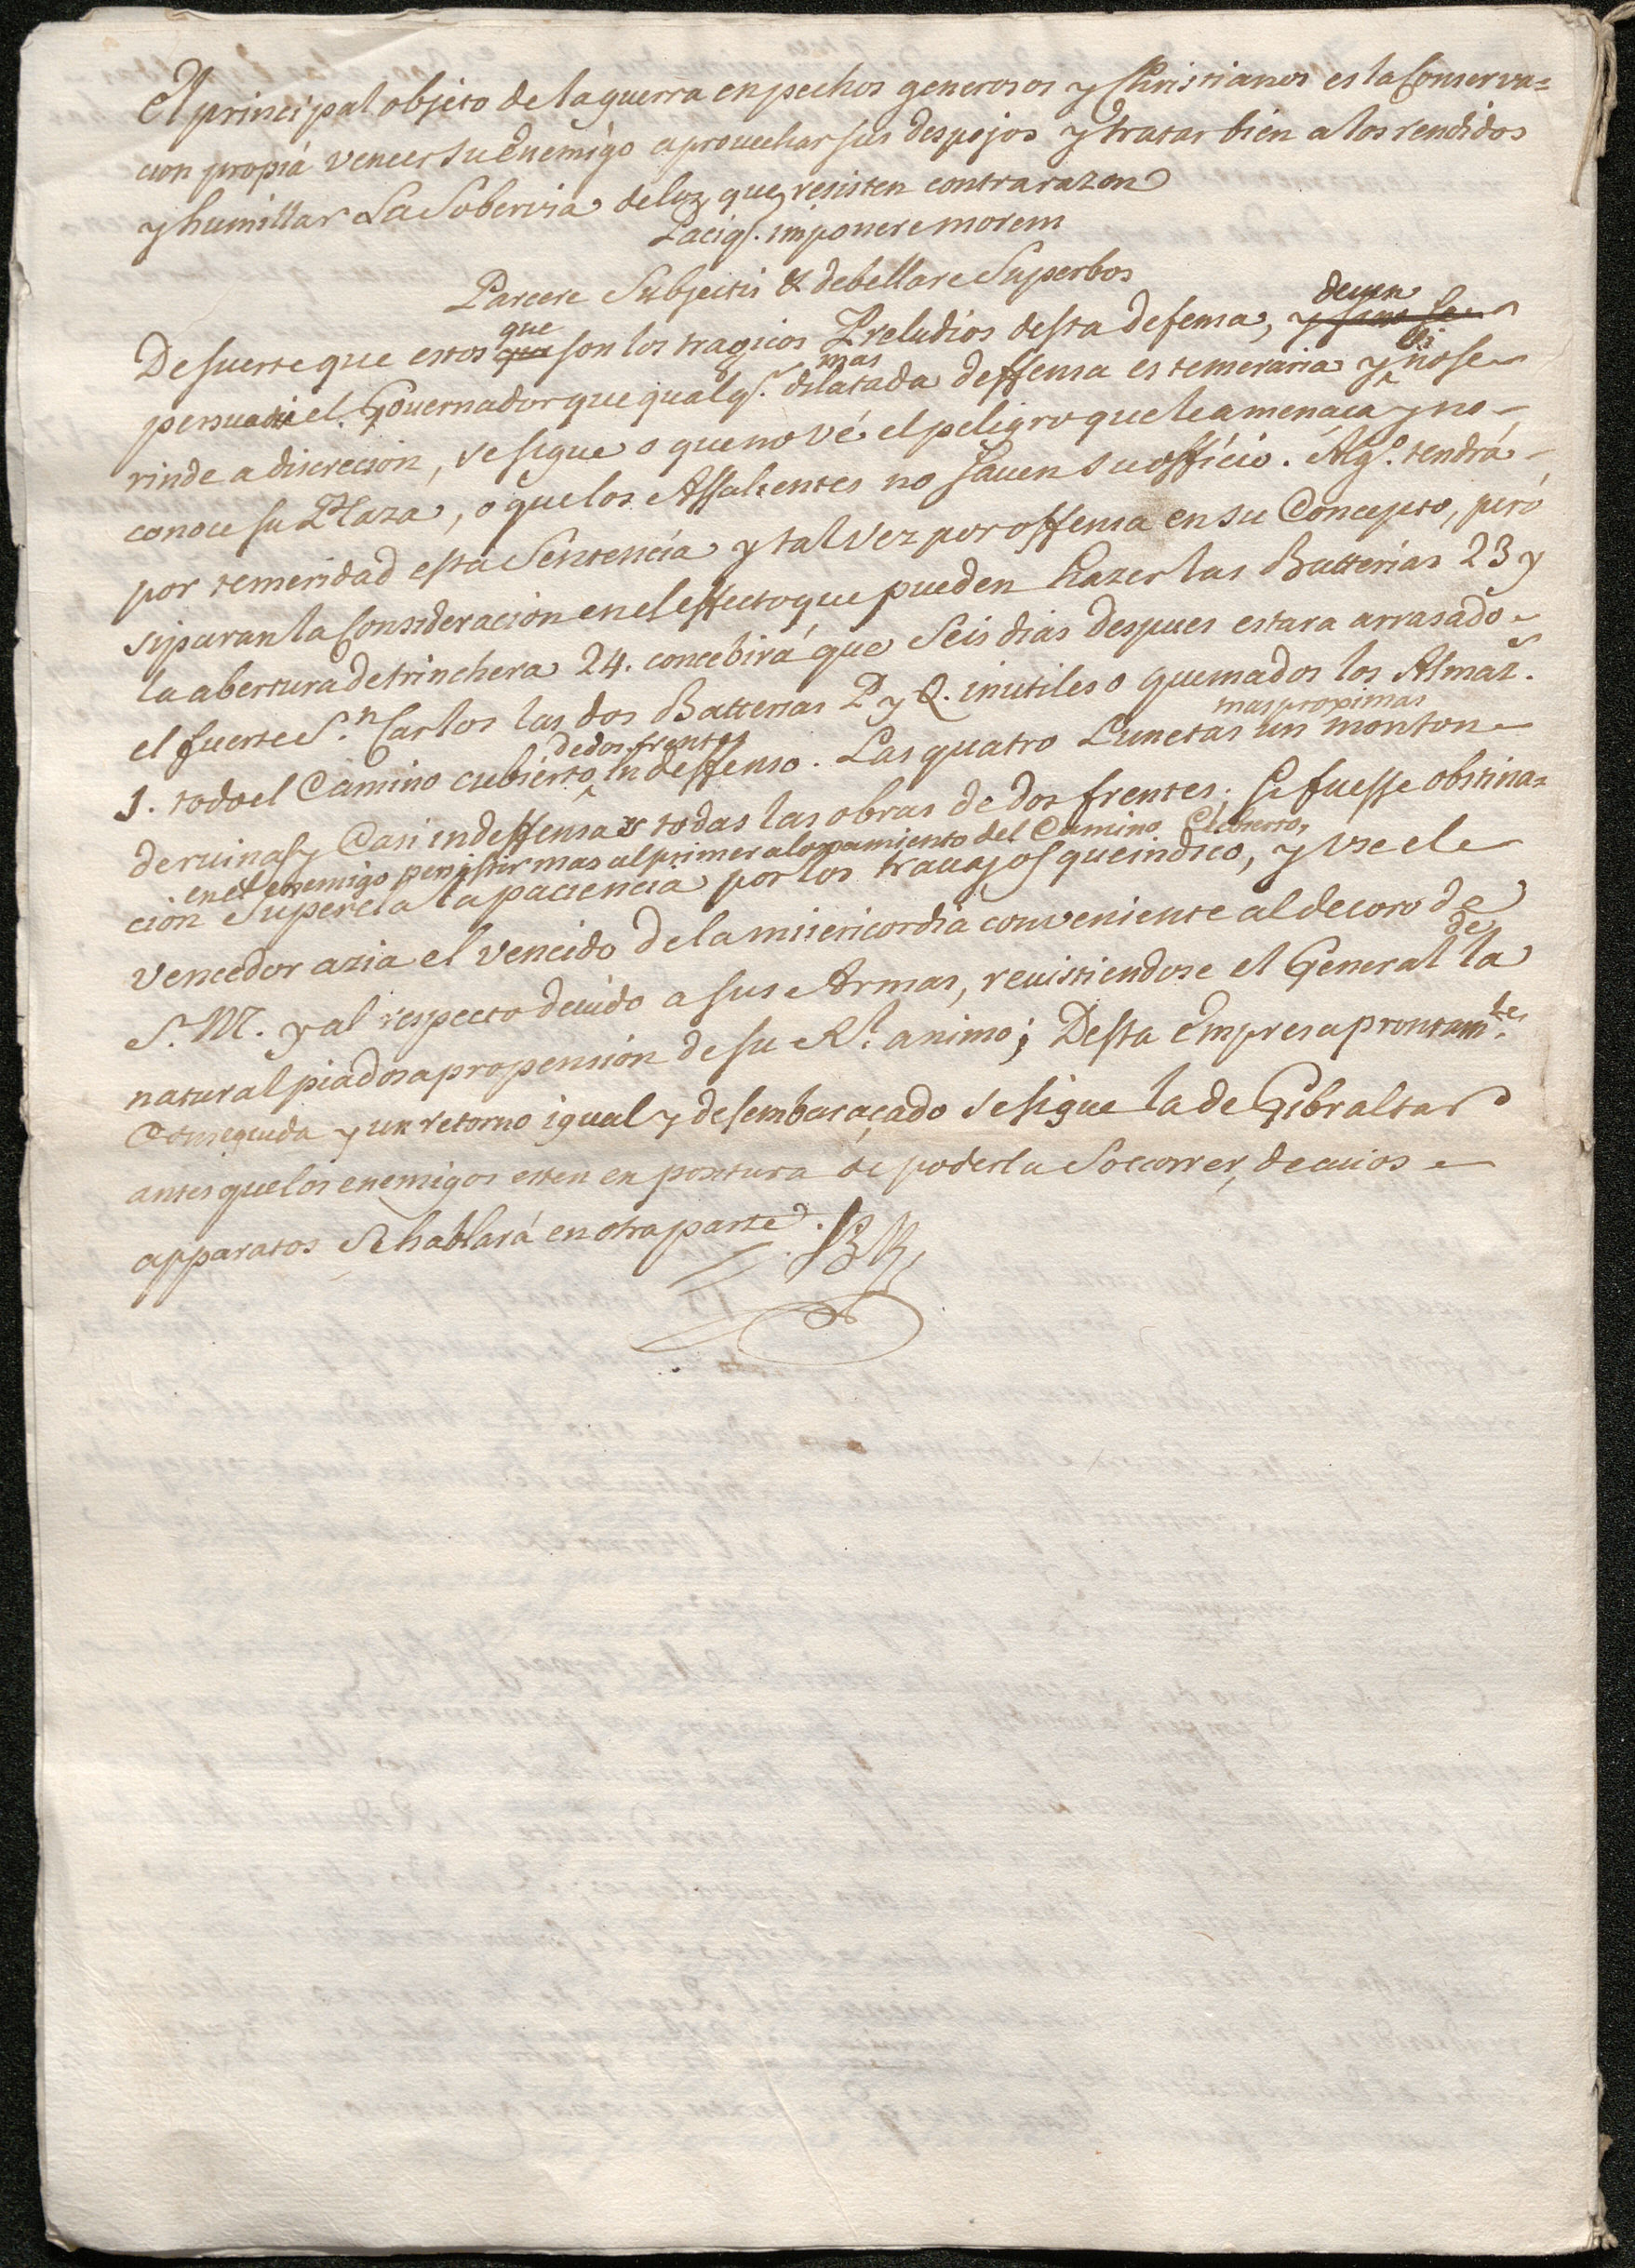 El principal objeto de la guerra en pechos generosos y Christianos es la Conserva=
cion propiá vencer su Enemigo aprovechar sus despojos y tratar bien a los rendidos
y humillar La Sobervia de los que resisten contra razon
Paciq. imponere morem
Parcere Subjectis & debellare Superbos
deuen
que
De suerte que estos que son los tragicos Preludios desta defensa, y
mas
si
persuadir el Gouernador que qualq.r dilatada deffensa es temeraria y no se
rinde a discrecion, se sigue o que no vé el peligro que le amenaça y no
conoce su Plaza, o que los Assaltentes no sauen su officio. Alg.o tendrá
por temeridad esta Sentencia y tal vez por offensa en su Concepto, peró
si paran la Consideracion en el effecto que pueden hazer las Batterias 23 y
la abertura de trinchera 24. concebirá que Seis dias despues estara arrasado
el fuerte S.n Carlos las dos Batterias P y Q. inutiles o quemados los Almaz.s
de dos frentes
mas proximas
1. todo el Camino cubierto Indeffenso. Las quatro Lunetas un monton
de ruinas y Casi indeffensas todas las obras de dos frentes; Se fuesse obstina=
en el enemigo persistir mas al primer alojamiento del Camino Cubierto,
cion Superela la paciencia por los trauajos que indico, y vse el
vencedor azia el vencido de la misericordia conveniente al decoro de
de
S. M. y al respecto deuido a sus Armas, reuistiendose el General la
natural piadosa propension de su R.l animo; Desta Empresa prontam.te
Conseguida y un retorno igual y desembaraçado se sigue la de Gibraltar
antes que los enemigos esten en postura de poderla Socorrer, de cuios
apparatos Se hablará en otra parte.